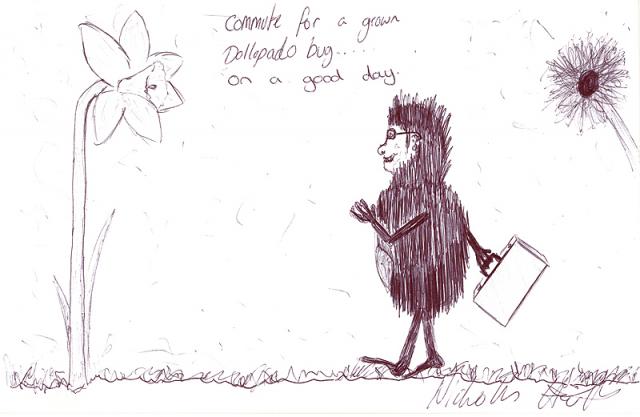 Commute for a grown
Dollopado bug.....
on a good day.
Nicholas